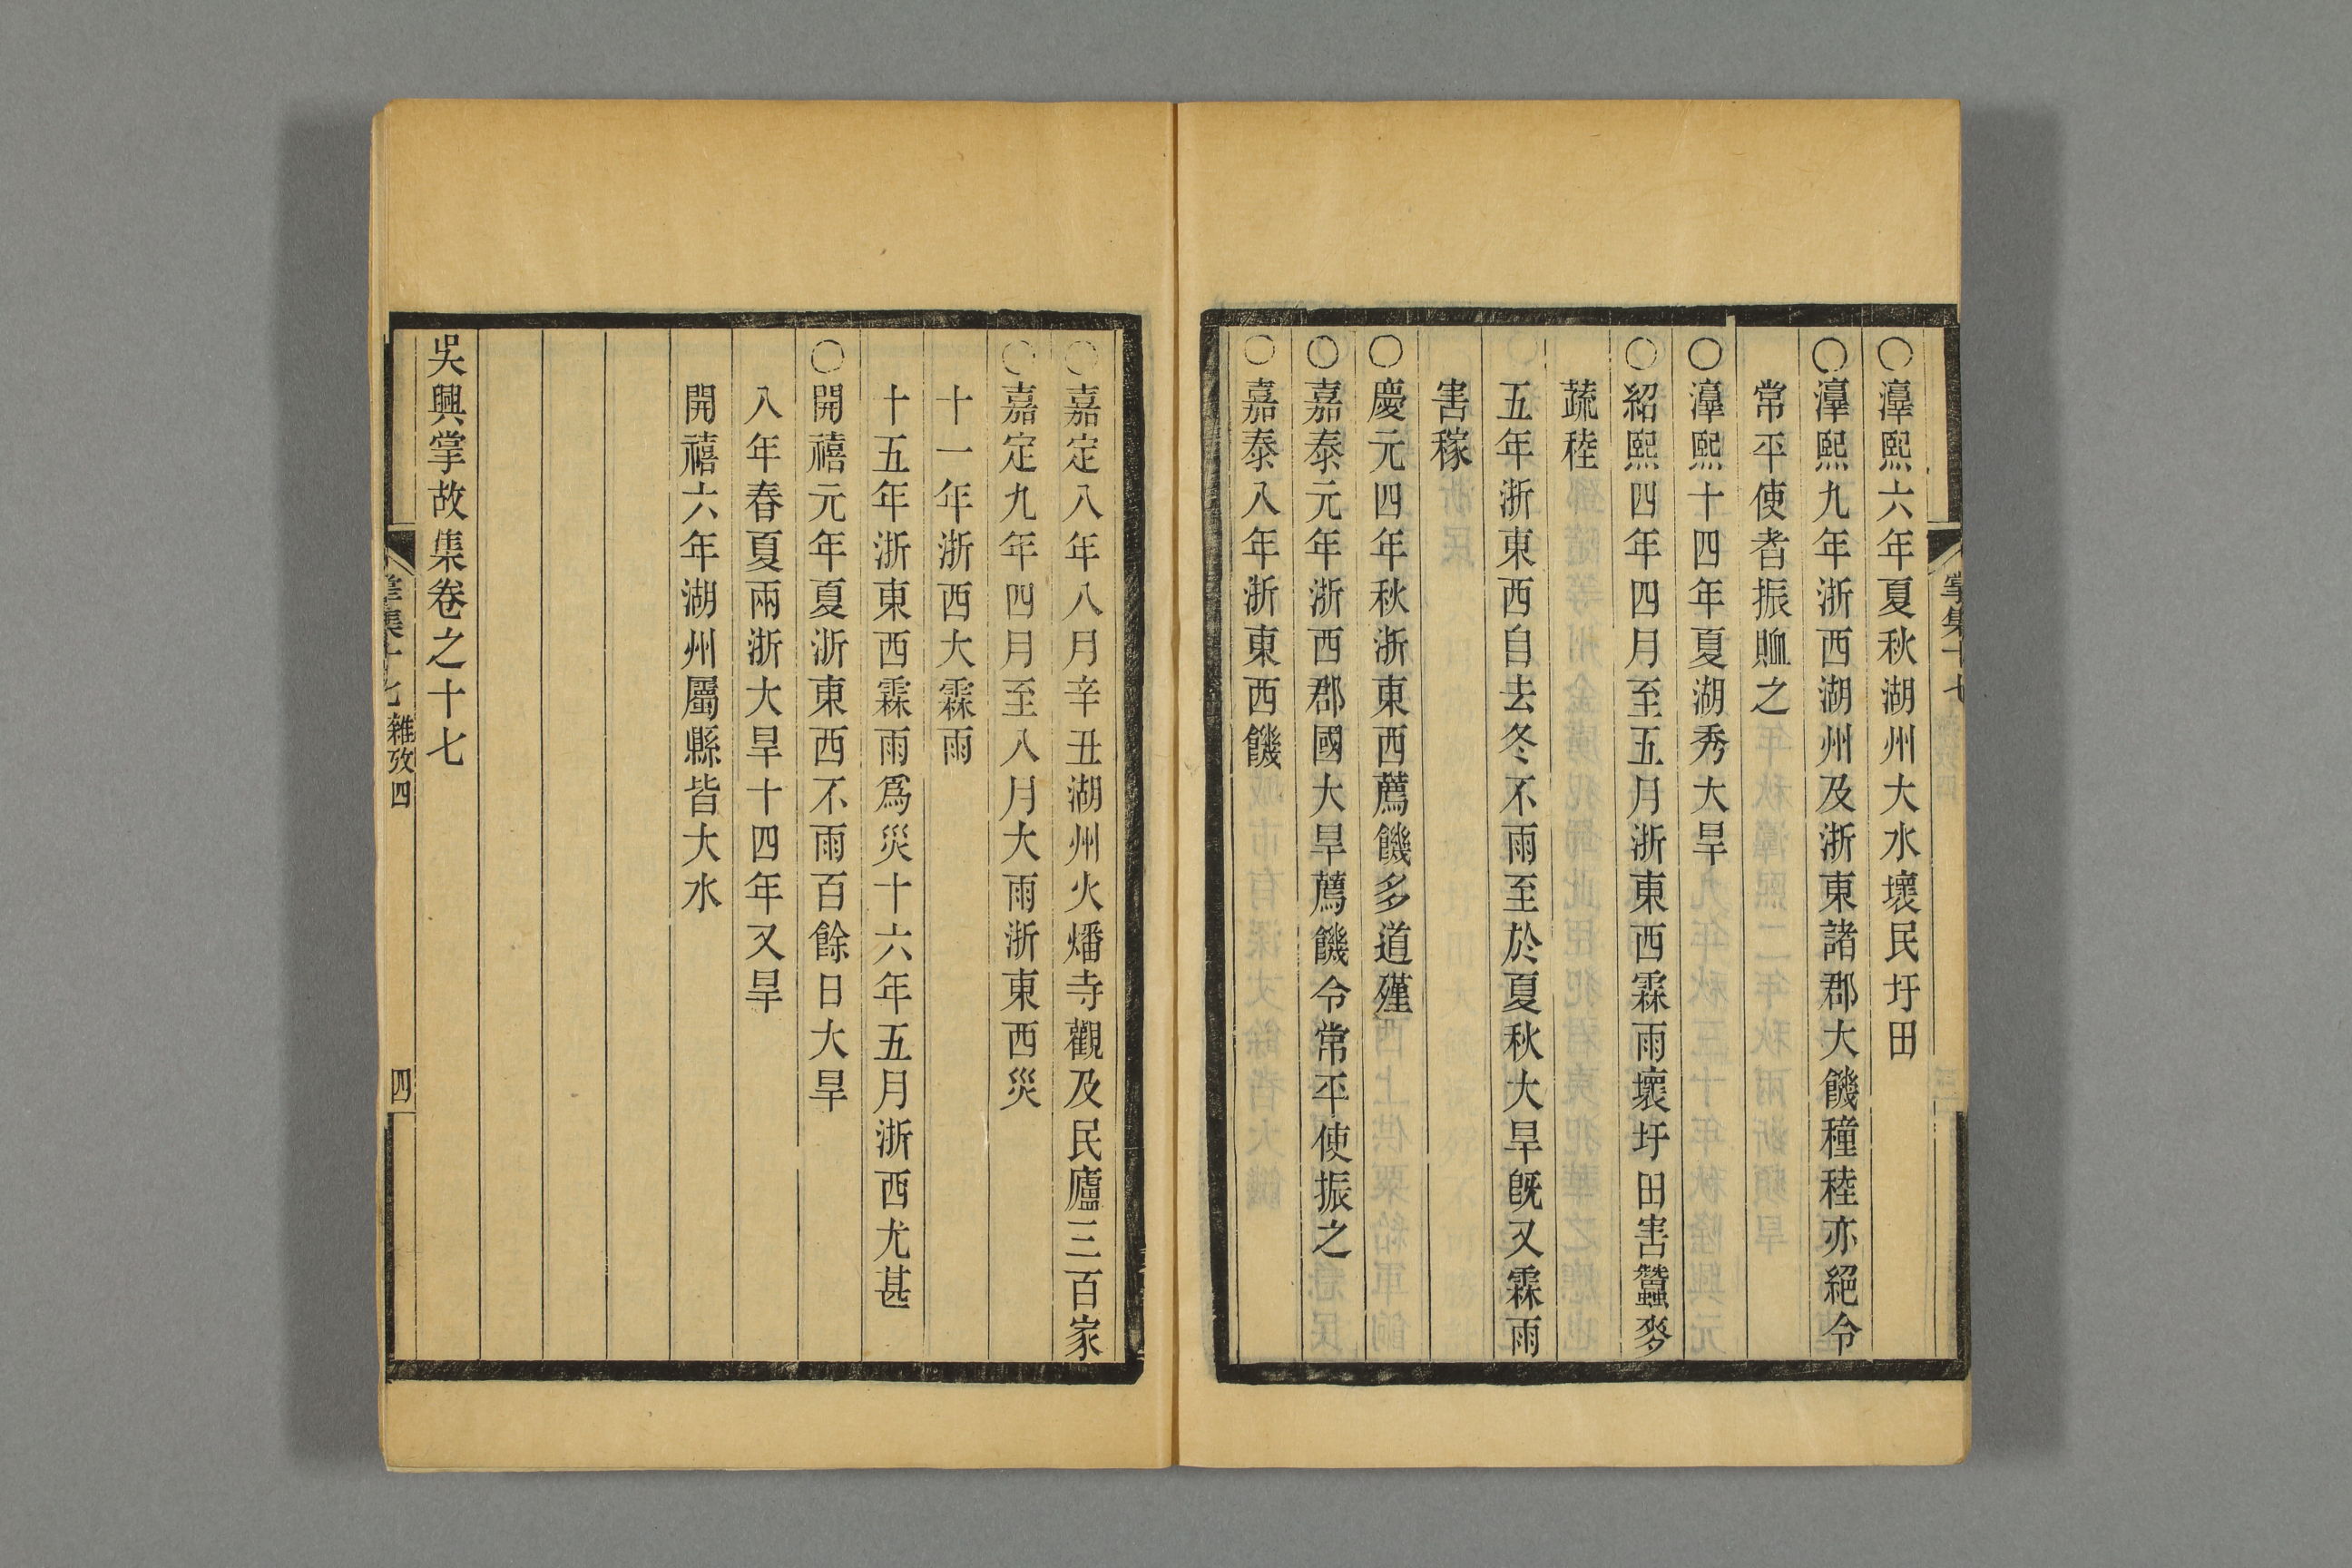 ○湻熙六年夏秋湖州大水壞民圩田
○湻熙九年浙西湖州及浙東諸郡大饑穜稑亦絕令
常平使者振䘏之
○湻熙十四年夏湖秀大旱
○紹熙四年四月至五月浙東西霖雨壞圩田害蠶麥
蔬稑
五年浙東西自去冬不雨至於夏秋大旱旣又霖雨
害稼
○慶元四年秋浙東西薦饑多道殣
○嘉泰元年浙西郡國大旱薦饑令常平使振之
○嘉泰八年浙東西饑
○嘉定八年八月辛丑湖州火燔寺觀及民廬三百家
○嘉定九年四月至八月大雨浙東西災
十一年浙西大霖雨
十五年浙東西霖雨爲災十六年五月浙西尤甚
○開禧元年夏浙東西不雨百餘日大旱
八年春夏兩浙大旱十四年又旱
開禧六年湖州屬縣皆大水
吳興掌故集卷之十七
掌集十七 雜攷四 四